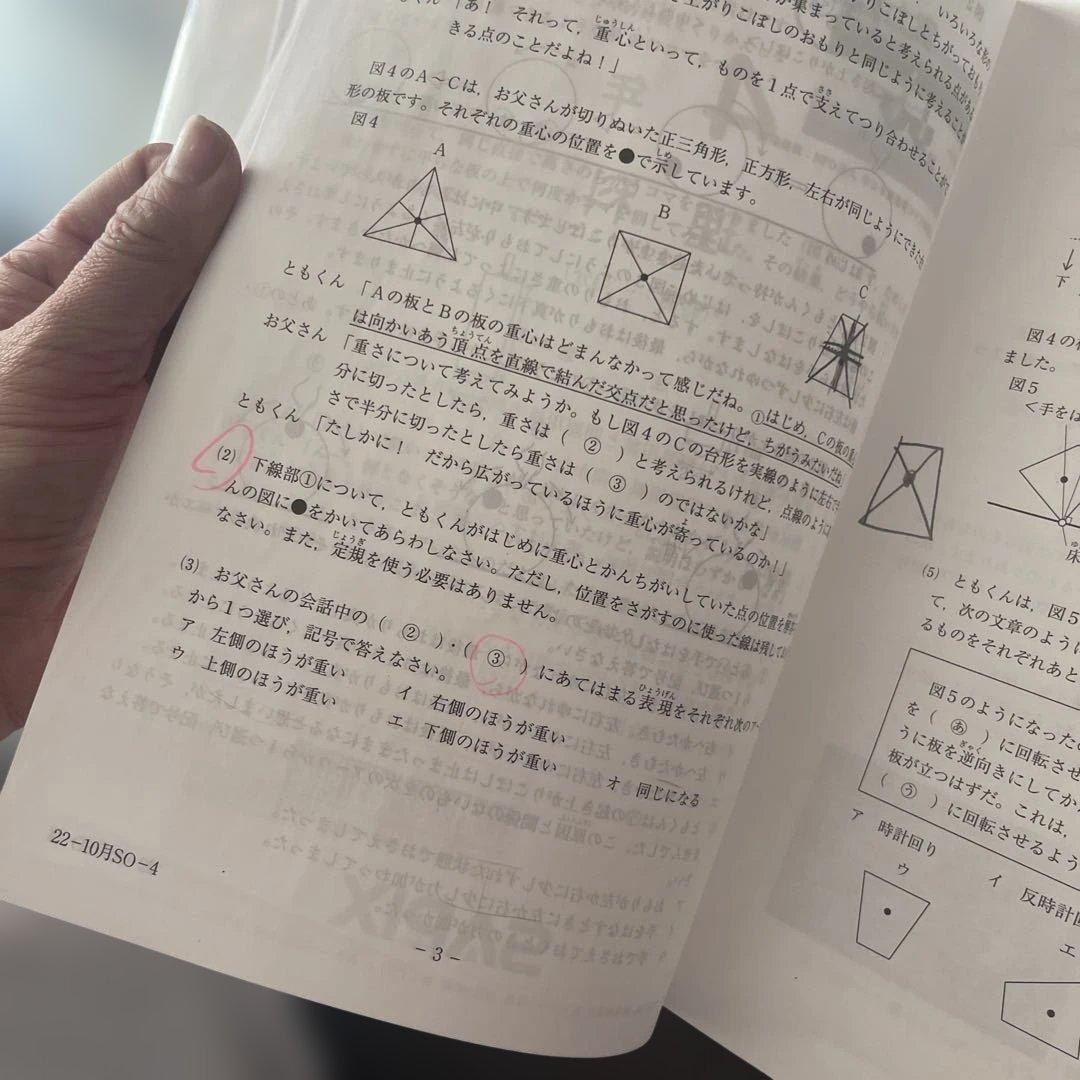 が集まっていると考えられる点が
「あ！ それって，重心といって，ものを１点で支えてつり合わせることが
きる点のことだよね！」
図４のＡ～Ｃは，お父さんが切りぬいた正三角形，正方形，左右が同じようにできた
形の板です。それぞれの重心の位置を●で示しています。
図４
A
B
C
ともくん 「Ａの板とＢの板の重心はどまんなかって感じだね。①はじめ，Ｃの板の重
は向かいあう頂点を直線で結んだ交点だと思ったけど，ちがうみたいだね
お父さん 「重さについて考えてみようか。もし図４のＣの台形を実線のように左右で
分に切ったとしたら，重さは（ ② ）と考えられるけれど，点線のように
さで半分に切ったとしたら重さは（ ③ ）のではないかな」
ともくん 「たしかに！ だから広がっているほうに重心が寄っているのか！」
(2) 下線部①について，ともくんがはじめに重心とかんちがいしていた点の位置を
んの図に●をかいてあらわしなさい。ただし，位置をさがすのに使った線は残して
なさい。また，定規を使う必要はありません。
(3) お父さんの会話中の（ ② ）・（ ③ ）にあてはまる表現をそれぞれ次のア～
から１つ選び，記号で答えなさい。
ア 左側のほうが重い イ 右側のほうが重い
ウ 上側のほうが重い エ 下側のほうが重い オ 同じになる
22－10月SO－4
－3－
下
図４の
ました。
図５
＜手をは
床
(5) ともくんは，図５
て，次の文章のように
るものをそれぞれあと
図５のようになった
を（ あ ）に回転させ
うに板を逆向きにしてか
板が立つはずだ。これは，
（ う ）に回転させるよう
ア 時計回り イ 反時計
ウ
エ